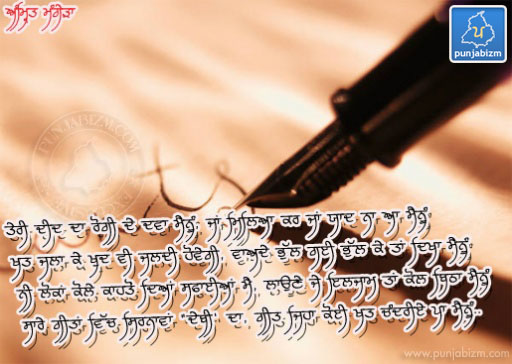 ਅੰਮ੍ਰਿਤ
punjabizm
PUNJABIZM.COM
ਤੇਰੀ ਦੀਦ ਦਾ ਰੋਗੀ ਦੇ ਦਵਾ ਮੈਨੂੰ, ਜਾਂ ਮਿਲਿਆ ਕਰ ਜਾਂ ਯਾਦ ਨਾ ਆ ਮੈਨੂੰ,
ਖਤ ਜਲਾ ਕੇ ਖੁਦ ਵੀ ਜਲਦੀ ਹੋਵੇਗੀ, ਵਾਅਦੇ ਭੁੱਲ ਗਈ ਭੁੱਲ ਕੇ ਤਾਂ ਦਿਖਾ ਮੈਨੂੰ
ਨੀ ਲੋਕਾਂ ਕੋਲੇ ਕਾਹਤੋਂ ਦਿਆਂ ਸਫਾਈਆਂ ਮੈਂ, ਲਾਉਣੇ ਜੇ ਇਲਜਾਮ ਤਾਂ ਕੋਲ ਬਿਠਾ ਮੈਨੂੰ
ਸਾਰੇ ਗੀਤਾਂ ਵਿੱਚ ਸਿਰਨਾਵਾਂ "ਦੇਬੀ" ਦਾ, ਗੀਤ ਜਿਹਾ ਕੋਈ ਖਤ ਚੰਦਰੀਏ ਪਾ ਮੈਨੂੰ..
www.punjabizm.com